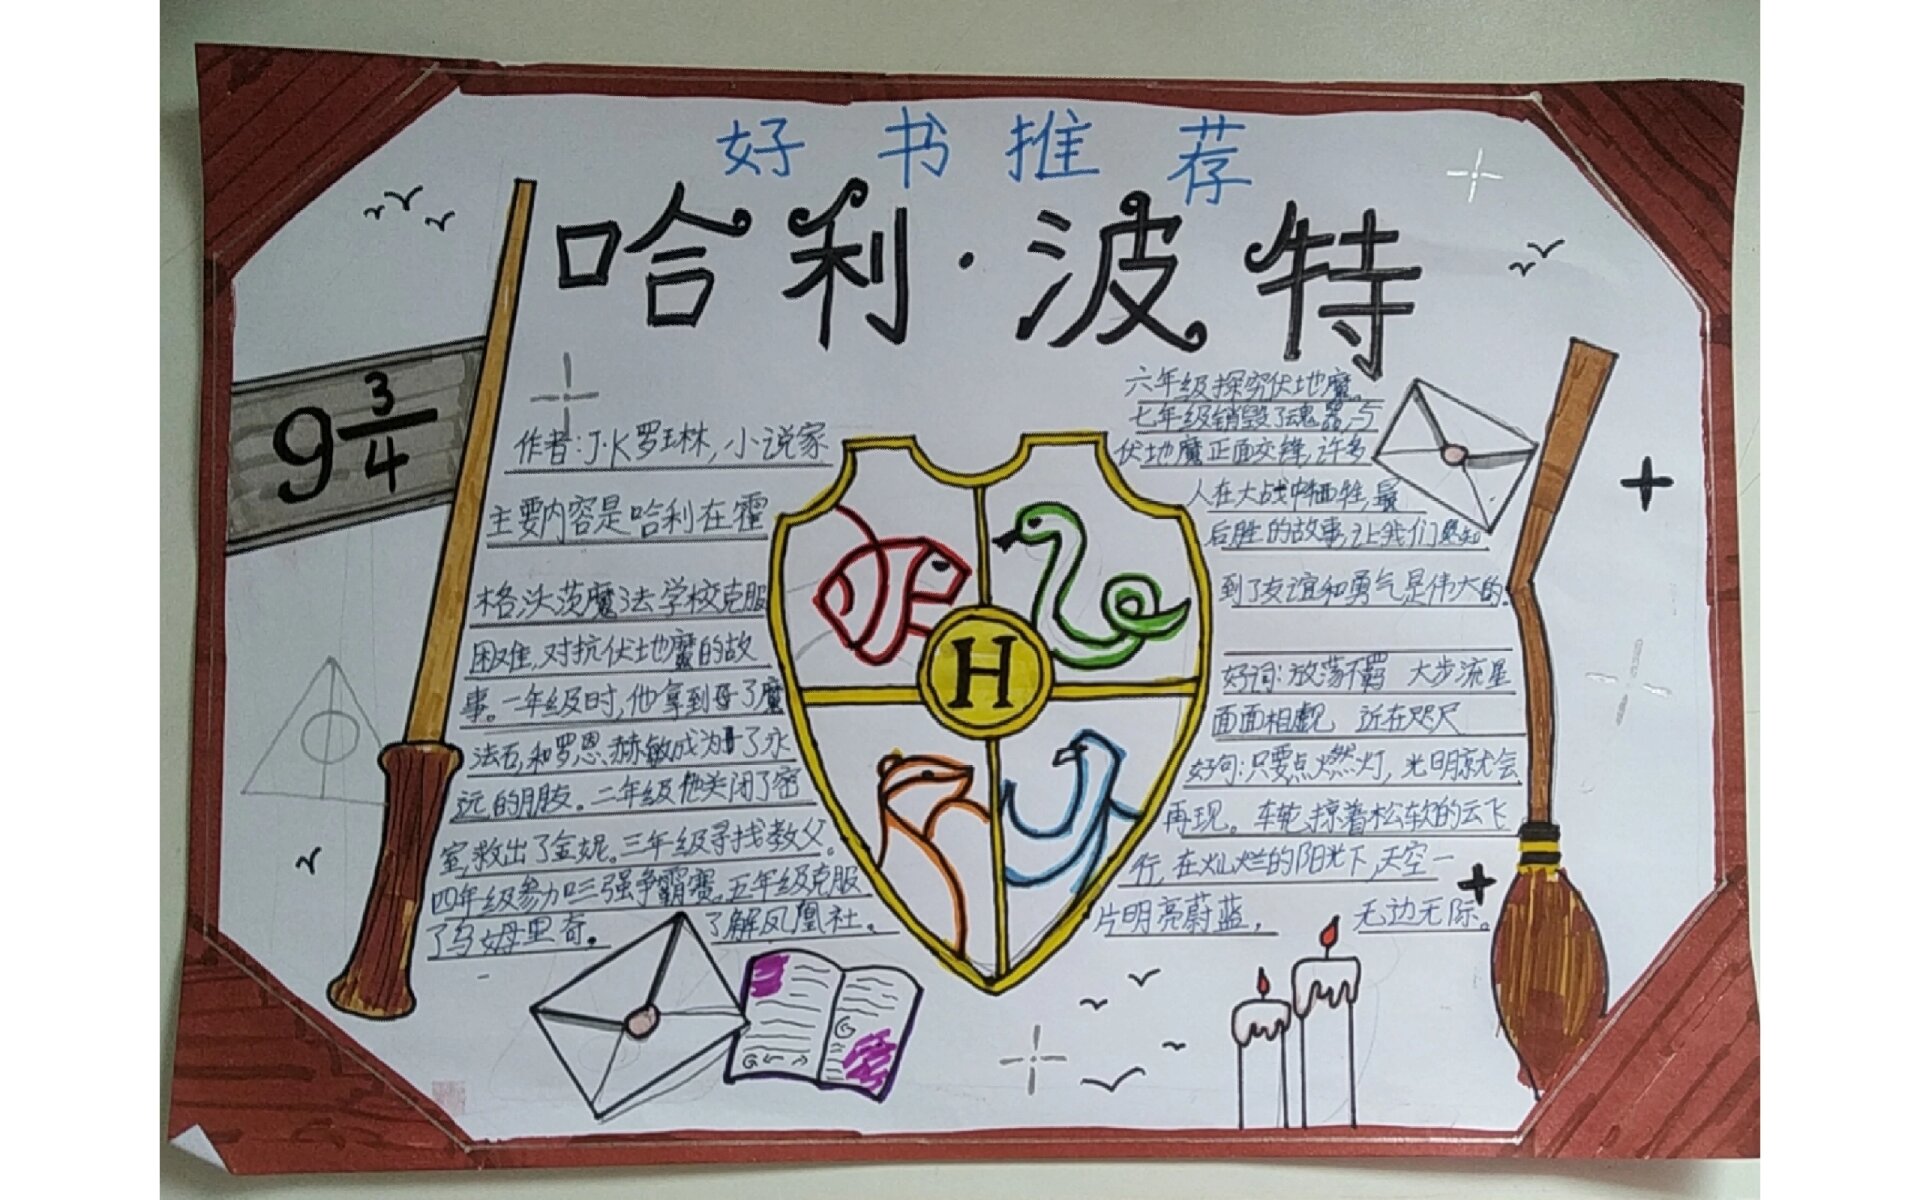 好书推荐
哈利·波特
9 3/4
作者:J·K罗琳,小说家
主要内容是哈利在霍
格沃茨魔法学校克服
困难,对抗伏地魔的故
事。一年级时,他拿到了魔
法石,和罗恩赫敏成为了永
远的朋友。二年级他关闭了密
室,救出了金妮。三年级寻找教父。
四年级参加三强争霸赛。五年级克服
了乌姆里奇。 了解凤凰社。
六年级探究伏地魔,
七年级销毁了魂器,与
伏地魔正面交锋,许多
人在大战中牺牲,最
后胜的故事,让我们感知
到了友谊和勇气是伟大的。
好词:放荡不羁 大步流星
面面相觑 近在咫尺
好句:只要点燃灯,光明就会
再现。车轮掠着松软的云飞
行,在灿烂的阳光下,天空一
片明亮蔚蓝, 无边无际。
H